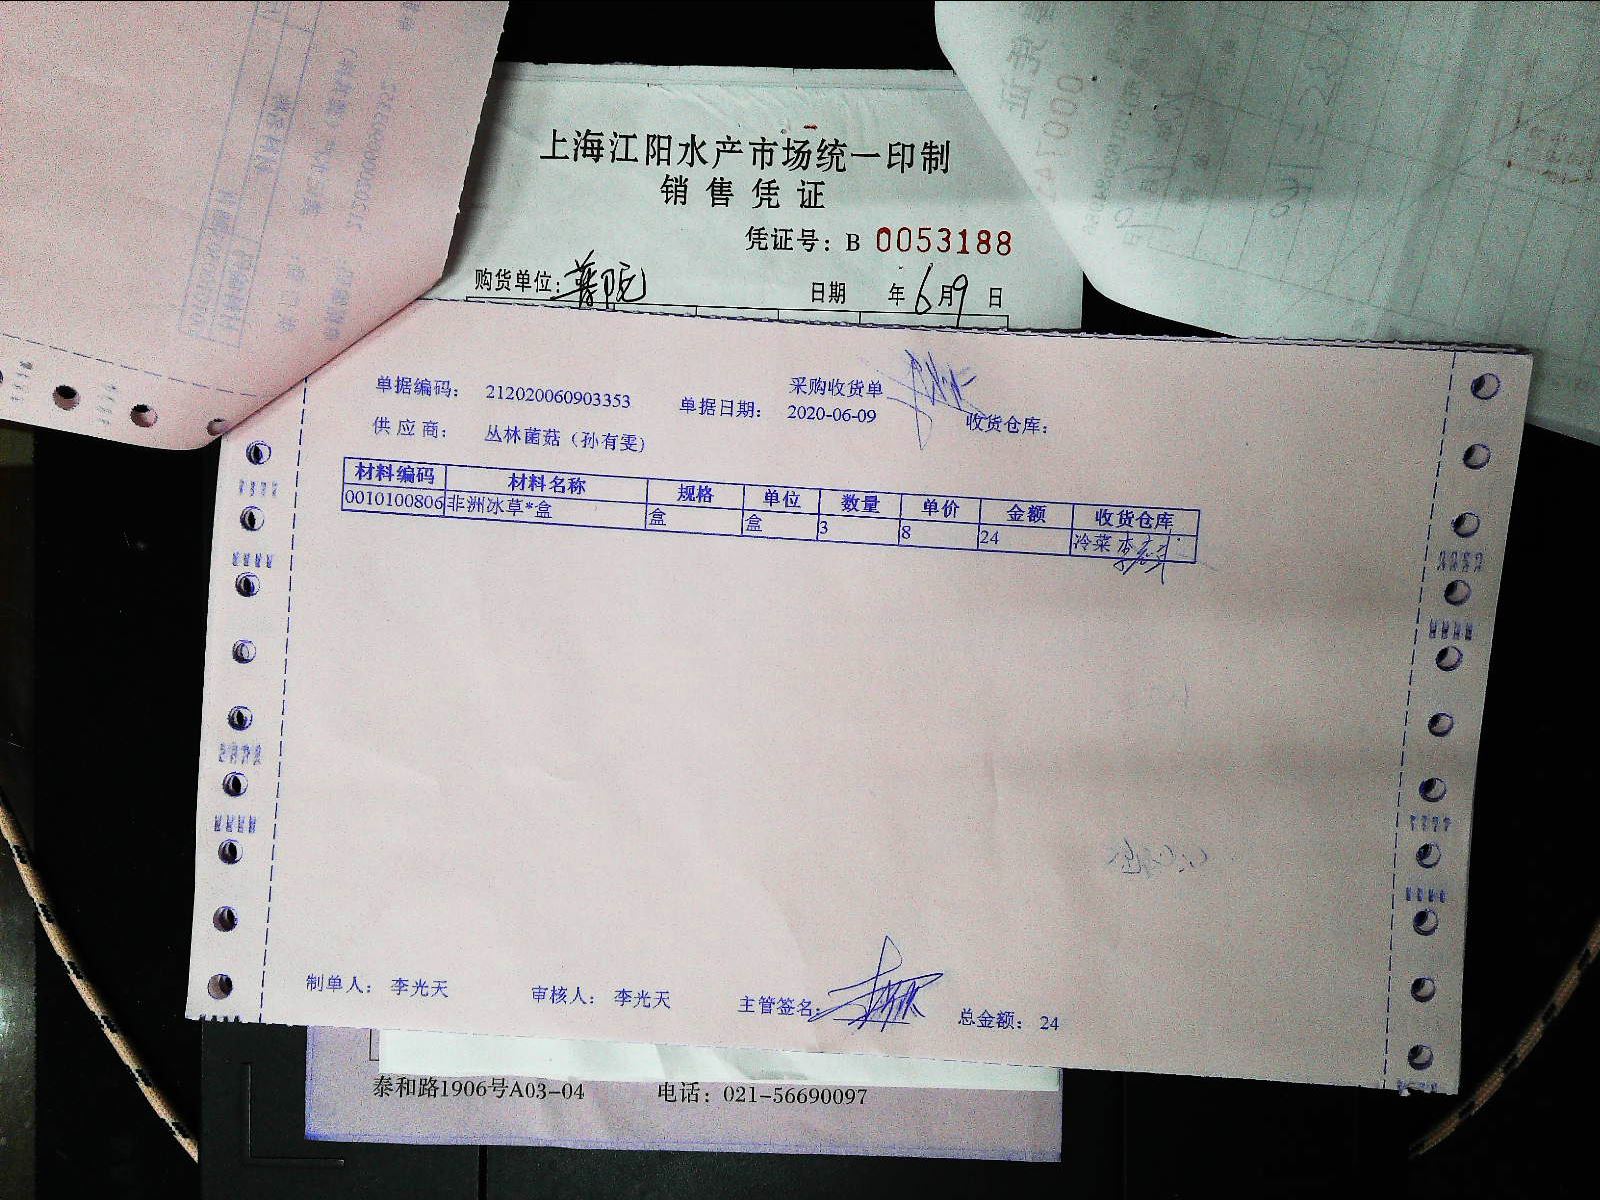 上海江阳水产市场统一印制
销售凭证
凭证号：B 0053188
购货单位： 日期 年6月9日
采购收货单
单据编码： 212020060903353 单据日期： 2020-06-09 收货仓库：
供应商： 丛林菌菇（孙有雯）
材料编码 材料名称 规格 单位 数量 单价 金额 收货仓库
0010100806 非洲冰草*盒 盒 盒 3 8 24 冷菜
制单人： 李光天 审核人： 李光天 主管签名： 总金额： 24
泰和路1906号A03-04 电话：021-56690097